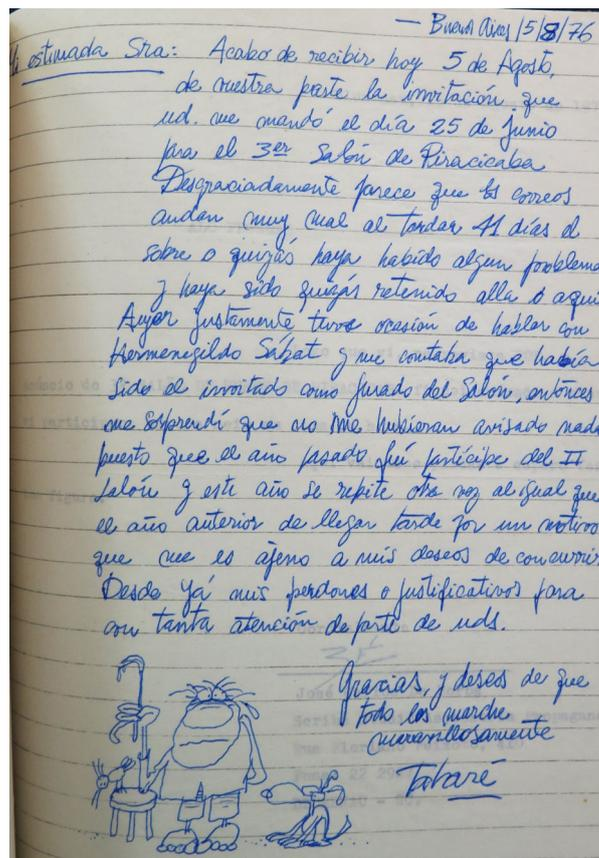 — Buenos Aires/5/8/76
Mi estimada Sra: Acabo de recibir hoy 5 de Agosto,
de vuestra parte la invitación que
ud. me mandó el día 25 de junio
para el 3er Salón de Piracicaba
Desgraciadamente parece que los correos
andan muy mal al tardar 41 días el
sobre o quizás haya habido algun problema
y haya sido quizás retenido alla o aquí
Ayer justamente tuve ocasión de hablar con
Hermenegildo Sábat y me contaba que había
sido el invitado como Jurado del Salón, entonces
me sorprendí que no me hubieran avisado nada
puesto que el año pasado fuí partícipe del II
Salón y este año se repite otra vez al igual que
el año anterior de llegar tarde por un motivo
que me es ajeno a mis deseos de concurrir
Desde yá mis perdones o justificativos para
con tanta atención de parte de uds.
Gracias, y deseos de que
todo les marche
maravillosamente
Tabaré